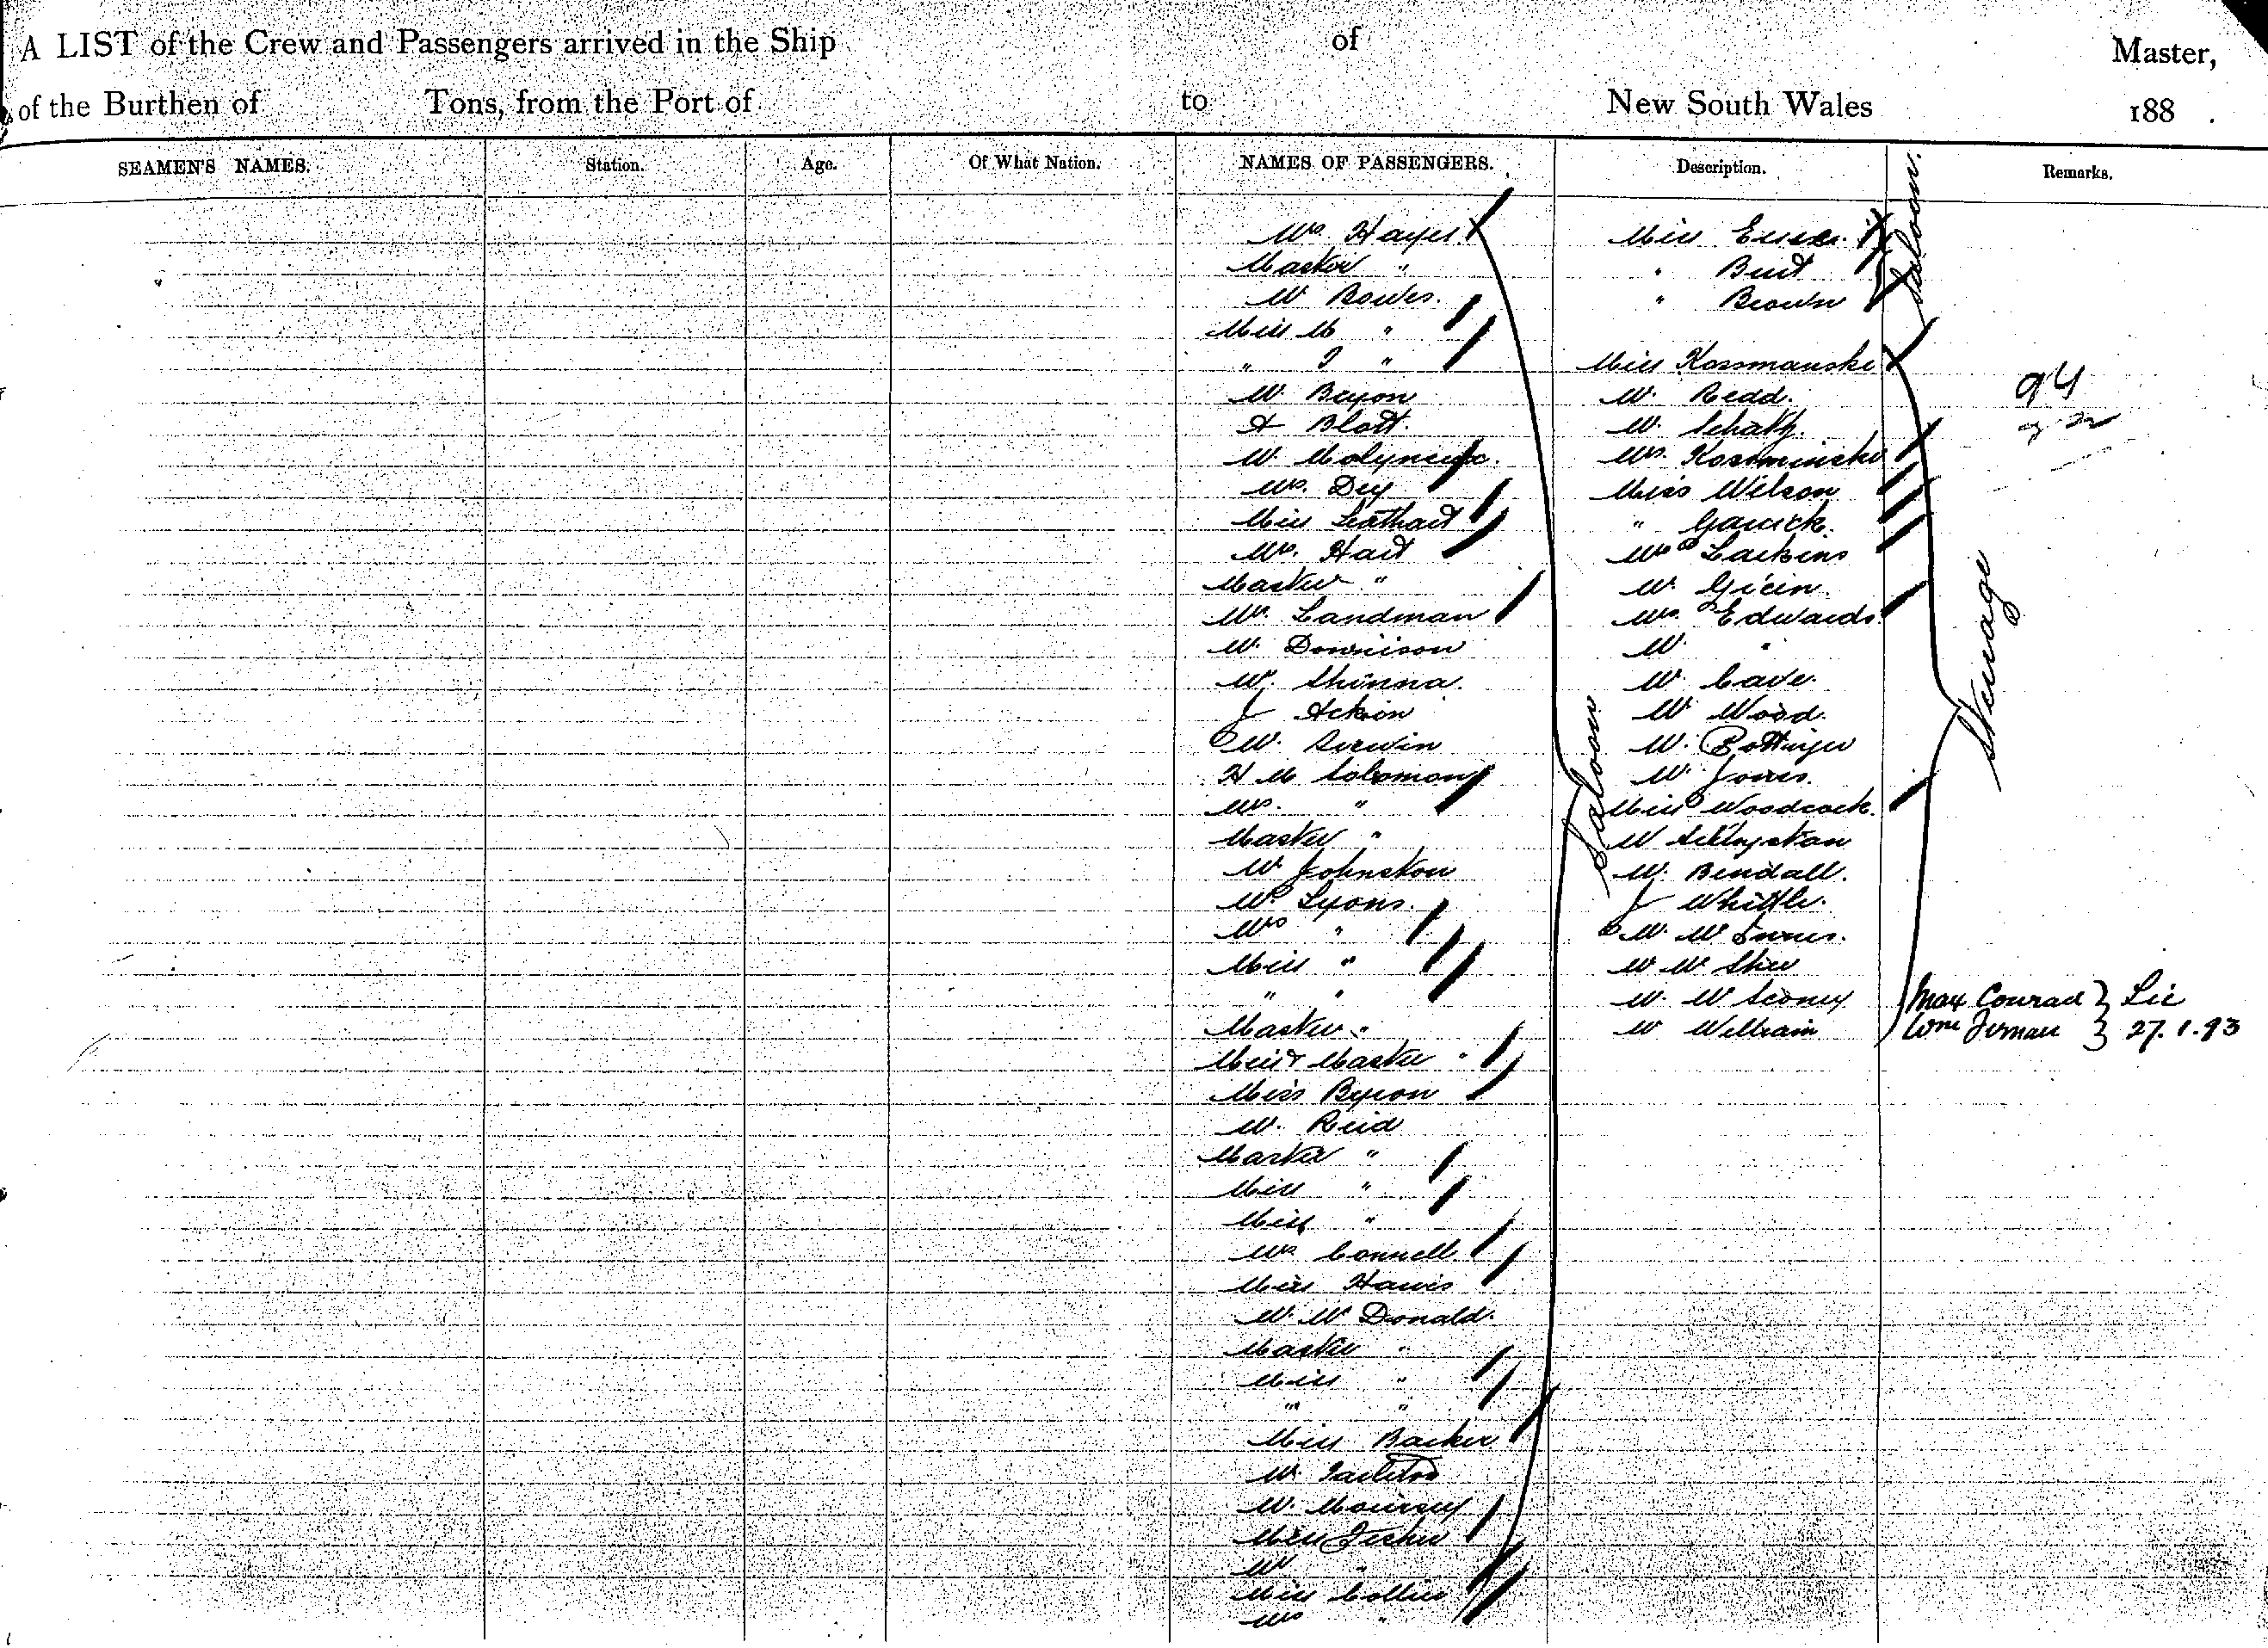 A LIST of the Crew and Passengers arrived in the Ship of Master,
of the Burthen of Tons, from the Port of to New South Wales 188 .
SEAMEN'S NAMES. Station. Age. Of What Nation. NAMES OF PASSENGERS. Description. Remarks.
Mrs. Hayes
Master "
Mr Bowes.
Miss M "
" "
Mr. Bryon
A Blott.
Mr. Molyneux.
Mrs. Dey
Miss Leathart
Mrs. Hart
Master "
Mrs. Landman
Mr. Dennison
Mr.
J
Mr.
H M Solomon
Mrs. "
Master "
Mr Johnston
Mr Lyons.
Mrs "
Miss "
" "
Master "
Miss & Master "
Miss Byron
Mr. Reid
Master "
Miss "
Miss "
Mrs Connell
Miss Harris
Mr. McDonald.
Master "
Miss "
" "
Miss Barker
Mr Tarleton
Mr.
Miss Fisher
Mr "
Miss Collins
Mrs "
Saloon
Miss
" Burt
" Brown
Saloon.
Miss Kossmanski
Mr. Redd.
Mr. Schatz.
Mrs. Kossminski
Miss Wilson
" Garrick.
Mrs Larkins
Mr. Green.
Mrs Edwards.
Mr. "
Mr. Cave.
Mr Wood.
Mr. Bottinger
Mr. Jones.
Miss Woodcock.
Mr
Mr. Bendall.
J Whittle.
Mr. McInnes.
Mr
Mr.
Mr William
Steerage
94
Max Conrad } Lic
Wm } 27.1.93